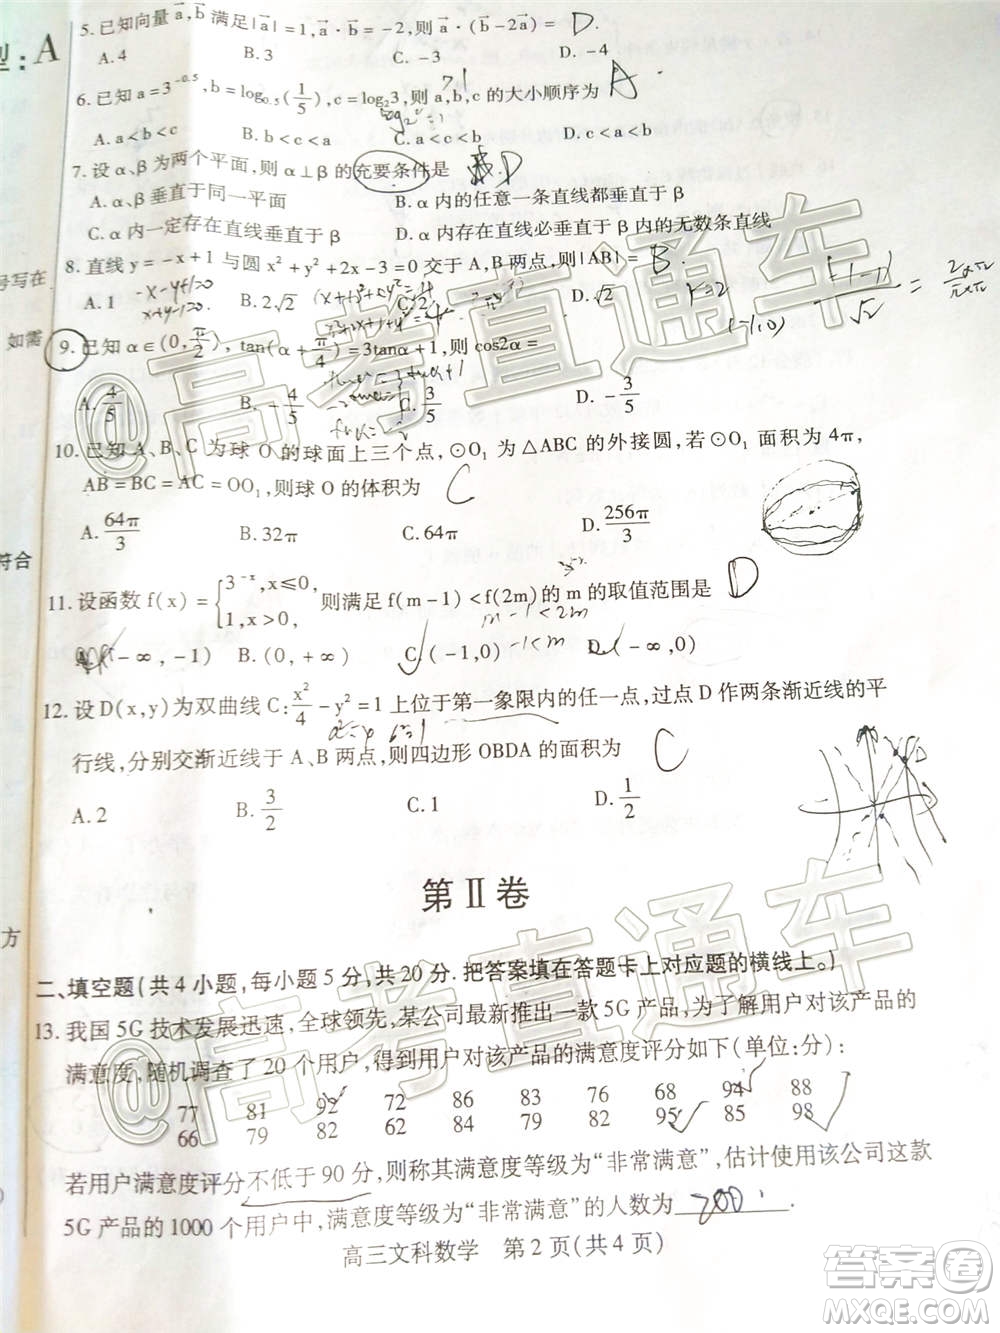 型：A
5. 已知向量 a⃗,b⃗ 满足|a⃗|=1, a⃗·b⃗=-2, 则 a⃗·(b⃗-2a⃗)= D.
A. 4 B. 3 C. -3 D. -4
6. 已知 a=3^-0.5, b=log0.5(1/5), c=log23, 则 a,b,c 的大小顺序为 A
A. a<b<c B. a<c<b C. c<a<b D. b<c<a
7. 设 α、β 为两个平面, 则 α⊥β 的充要条件是 D
A. α、β 垂直于同一平面 B. α 内的任意一条直线都垂直于 β
C. α 内一定存在直线垂直于 β D. α 内存在直线必垂直于 β 内的无数条直线
号写在
8. 直线 y=-x+1 与圆 x²+y²+2x-3=0 交于 A,B 两点, 则|AB|= B.
A. 1 B. 2√2 C. 2 D. √2
-x-y+1=0
x+y-1=0
r=2
(-1,0)
如需
9. 已知 α∈(0, π/2), tan(α+π/4)=3tanα+1, 则 cos2α=
A. 4/5 B. -4/5 C. 3/5 D. -3/5
10. 已知 A、B、C 为球 O 的球面上三个点, ⊙O1 为 △ABC 的外接圆, 若 ⊙O1 面积为 4π,
AB=BC=AC=OO1, 则球 O 的体积为 C
A. 64π/3 B. 32π C. 64π D. 256π/3
符合
11. 设函数 f(x)={3^-x, x≤0, 1, x>0, 则满足 f(m-1)<f(2m)的 m 的取值范围是 D
m-1<2m
-1<m
A. (-∞,-1) B. (0,+∞) C. (-1,0) D. (-∞,0)
12. 设 D(x,y)为双曲线 C: x²/4-y²=1 上位于第一象限内的任一点, 过点 D 作两条渐近线的平
行线, 分别交渐近线于 A、B 两点, 则四边形 OBDA 的面积为 C
A. 2 B. 3/2 C. 1 D. 1/2
第Ⅱ卷
方
二、填空题(共 4 小题, 每小题 5 分, 共 20 分. 把答案填在答题卡上对应题的横线上。)
13. 我国 5G 技术发展迅速, 全球领先, 某公司最新推出一款 5G 产品, 为了解用户对该产品的
满意度, 随机调查了 20 个用户, 得到用户对该产品的满意度评分如下(单位:分):
77 81 92 72 86 83 76 68 94 88
66 79 82 81 82 74 64 95 85 98
若用户满意度评分不低于 90 分, 则称其满意度等级为“非常满意”, 估计使用该公司这款
5G 产品的 1000 个用户中, 满意度等级为“非常满意”的人数为 200.
高三文科数学 第 2 页(共 4 页)
@高考直通车
@高考直通车
答案圈
MXQE.COM